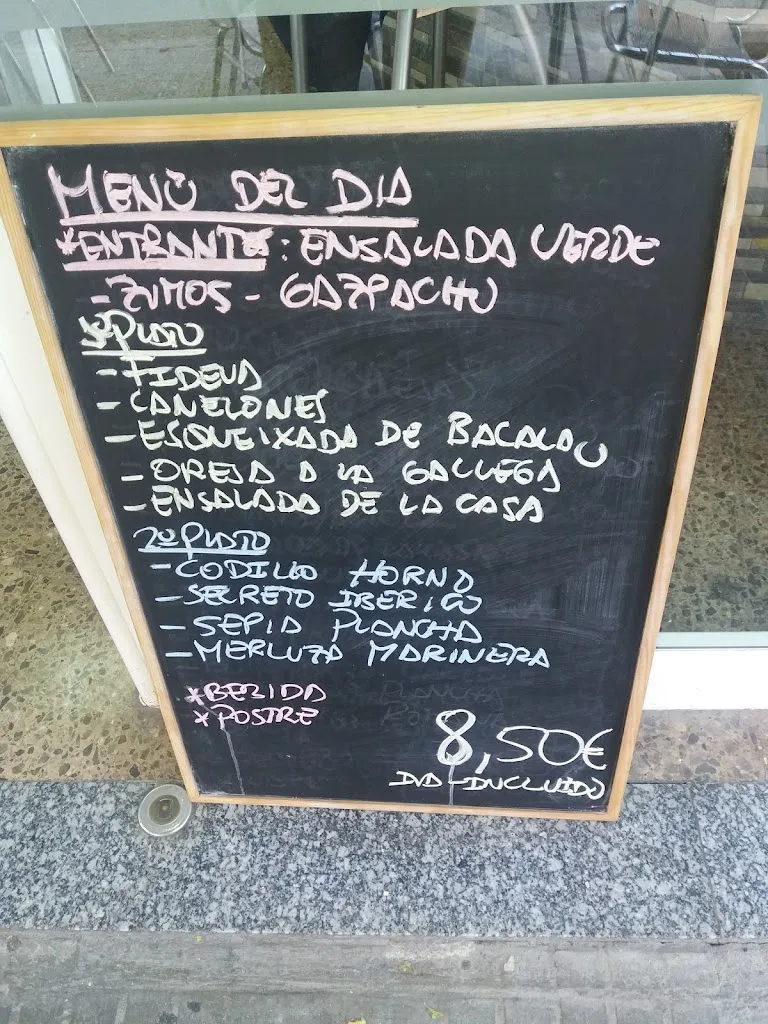 MENÚ DEL DIA
*ENTRANTES: ENSALADA VERDE
- ZUMOS - GAZPACHO
1º PLATO
- FIDEUA
- CANELONES
- ESQUEIXADA DE BACALAO
- OREJA A LA GALLEGA
- ENSALADA DE LA CASA
2º PLATO
- CODILLO HORNO
- SECRETO IBERICO
- SEPIA PLANCHA
- MERLUZA MARINERA
*BEBIDA
*POSTRE
8,50€
IVA-INCLUIDO